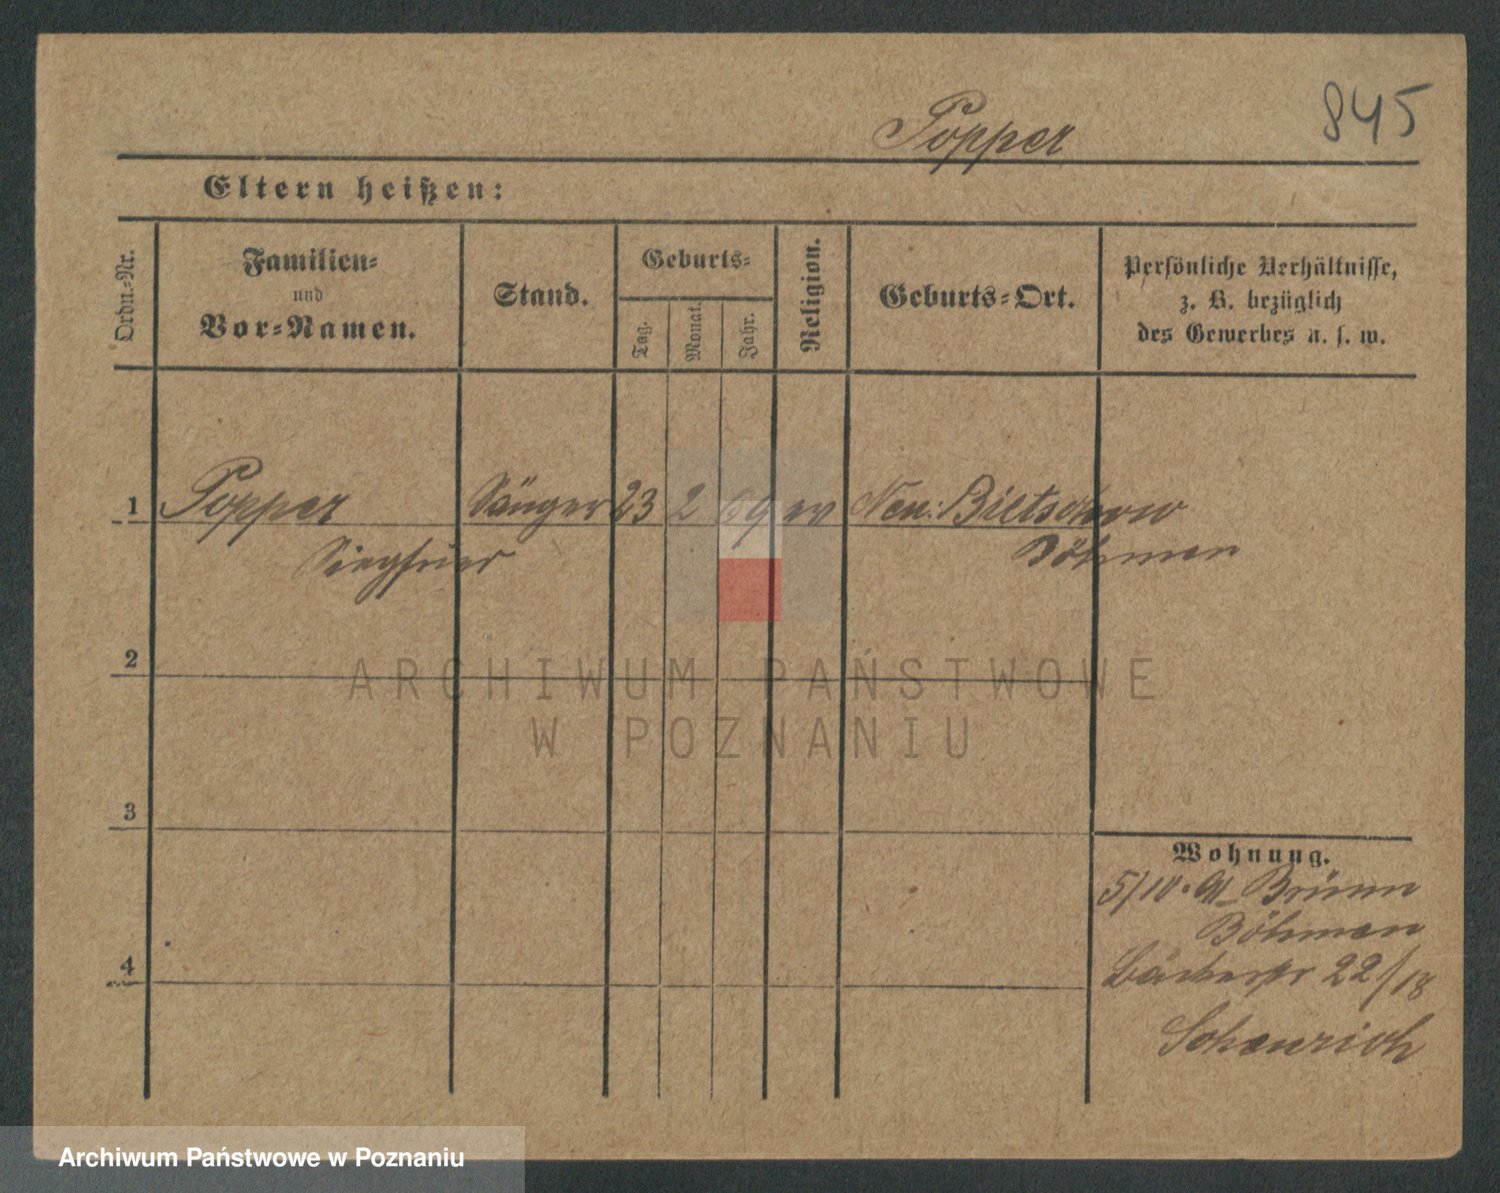 845
Popper
Eltern heißen:
Ordn.-Nr.
Familien-
und
Vor-Namen.
Stand.
Geburts-
Tag.
Monat.
Jahr.
Religion.
Geburts-Ort.
Persönliche Verhältnisse,
z. B. bezüglich
des Gewerbes u. s. w.
1 Popper Sänger 23 2 69 ev Neu-Bietschow
Siegfried Böhmen
2
3
4
Wohnung.
5/10. 91 Brünn
Böhmen
Bäckerstr 22/18
ARCHIWUM PAŃSTWOWE
W POZNANIU
Archiwum Państwowe w Poznaniu